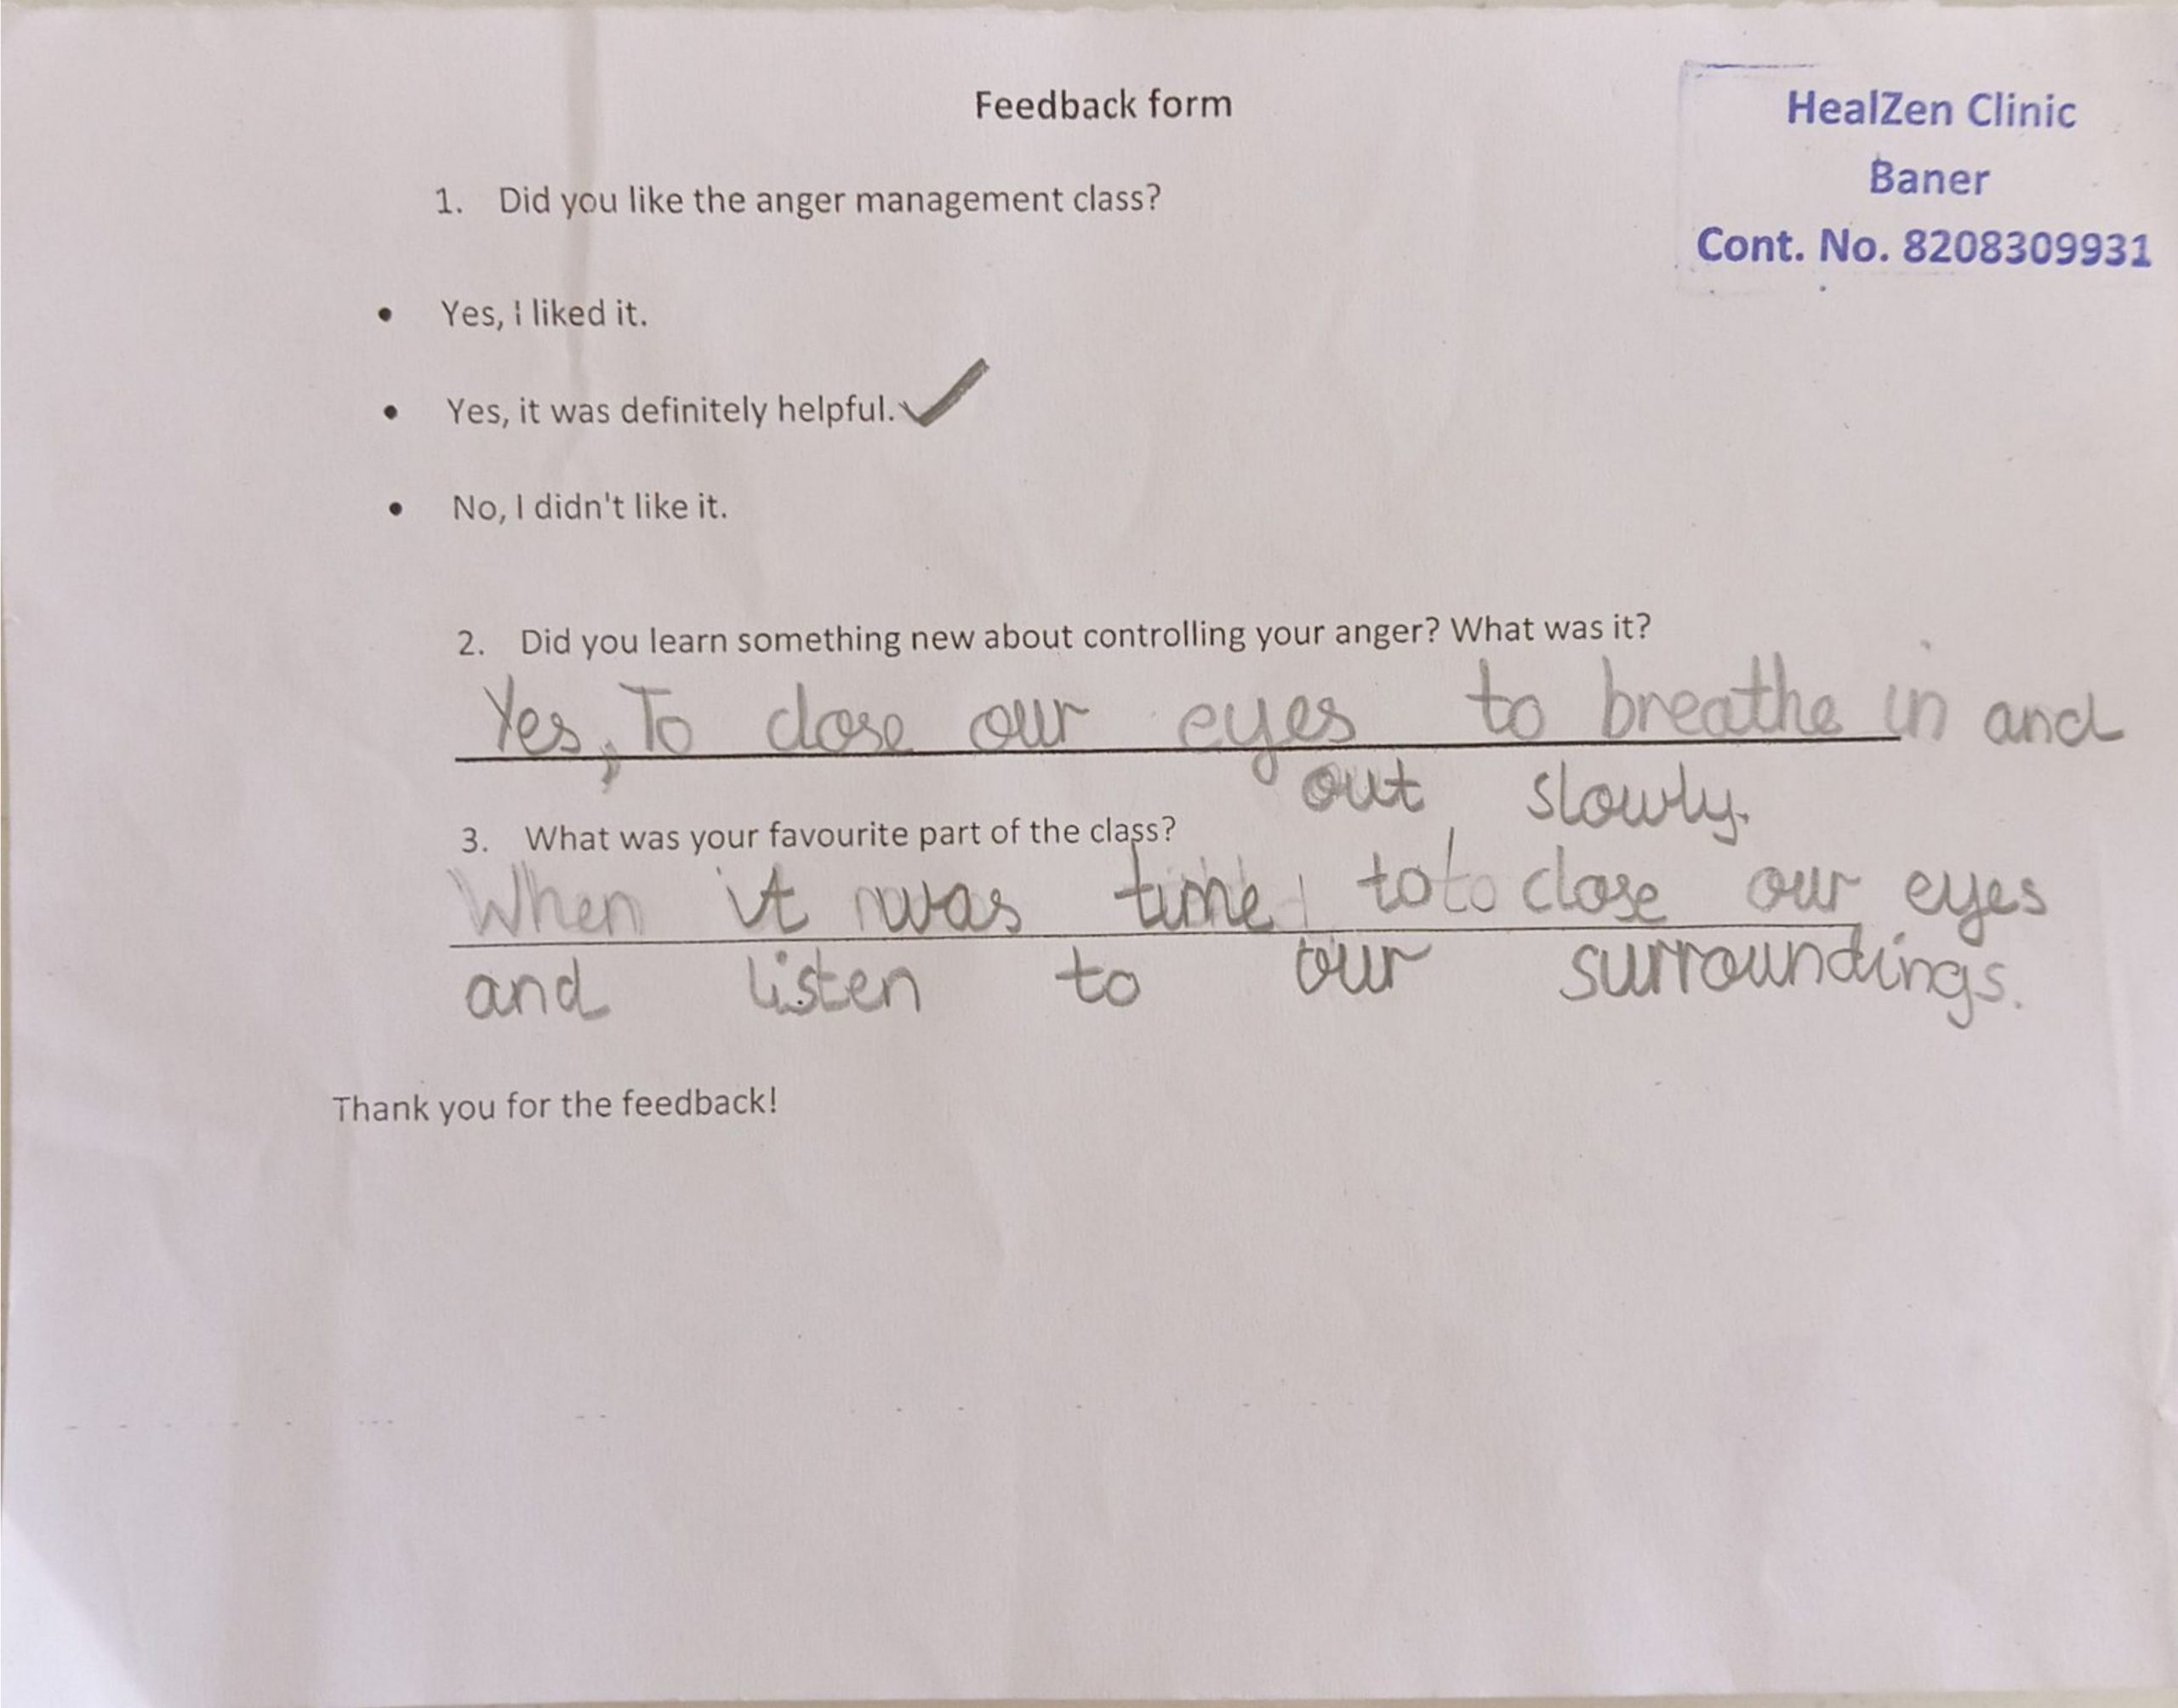 Feedback form
HealZen Clinic
Baner
Cont. No. 8208309931
1. Did you like the anger management class?
• Yes, I liked it.
• Yes, it was definitely helpful. ✓
• No, I didn't like it.
2. Did you learn something new about controlling your anger? What was it?
Yes, To close our eyes to breathe in and
out slowly.
3. What was your favourite part of the class?
When it was time to to close our eyes
and listen to our surroundings.
Thank you for the feedback!